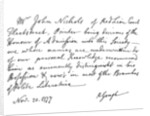 Mr John Nichols of Red Lion Court
Fleet Street, Printer being desirous of the
Honour of Admission into this Society
we whose names are underwritten do
of our personal Knowledge recommend
him as eminently distinguished in his
Profession & versed in most of the Branches
of Polite Literature
Nov. 20. 1777
R Gough